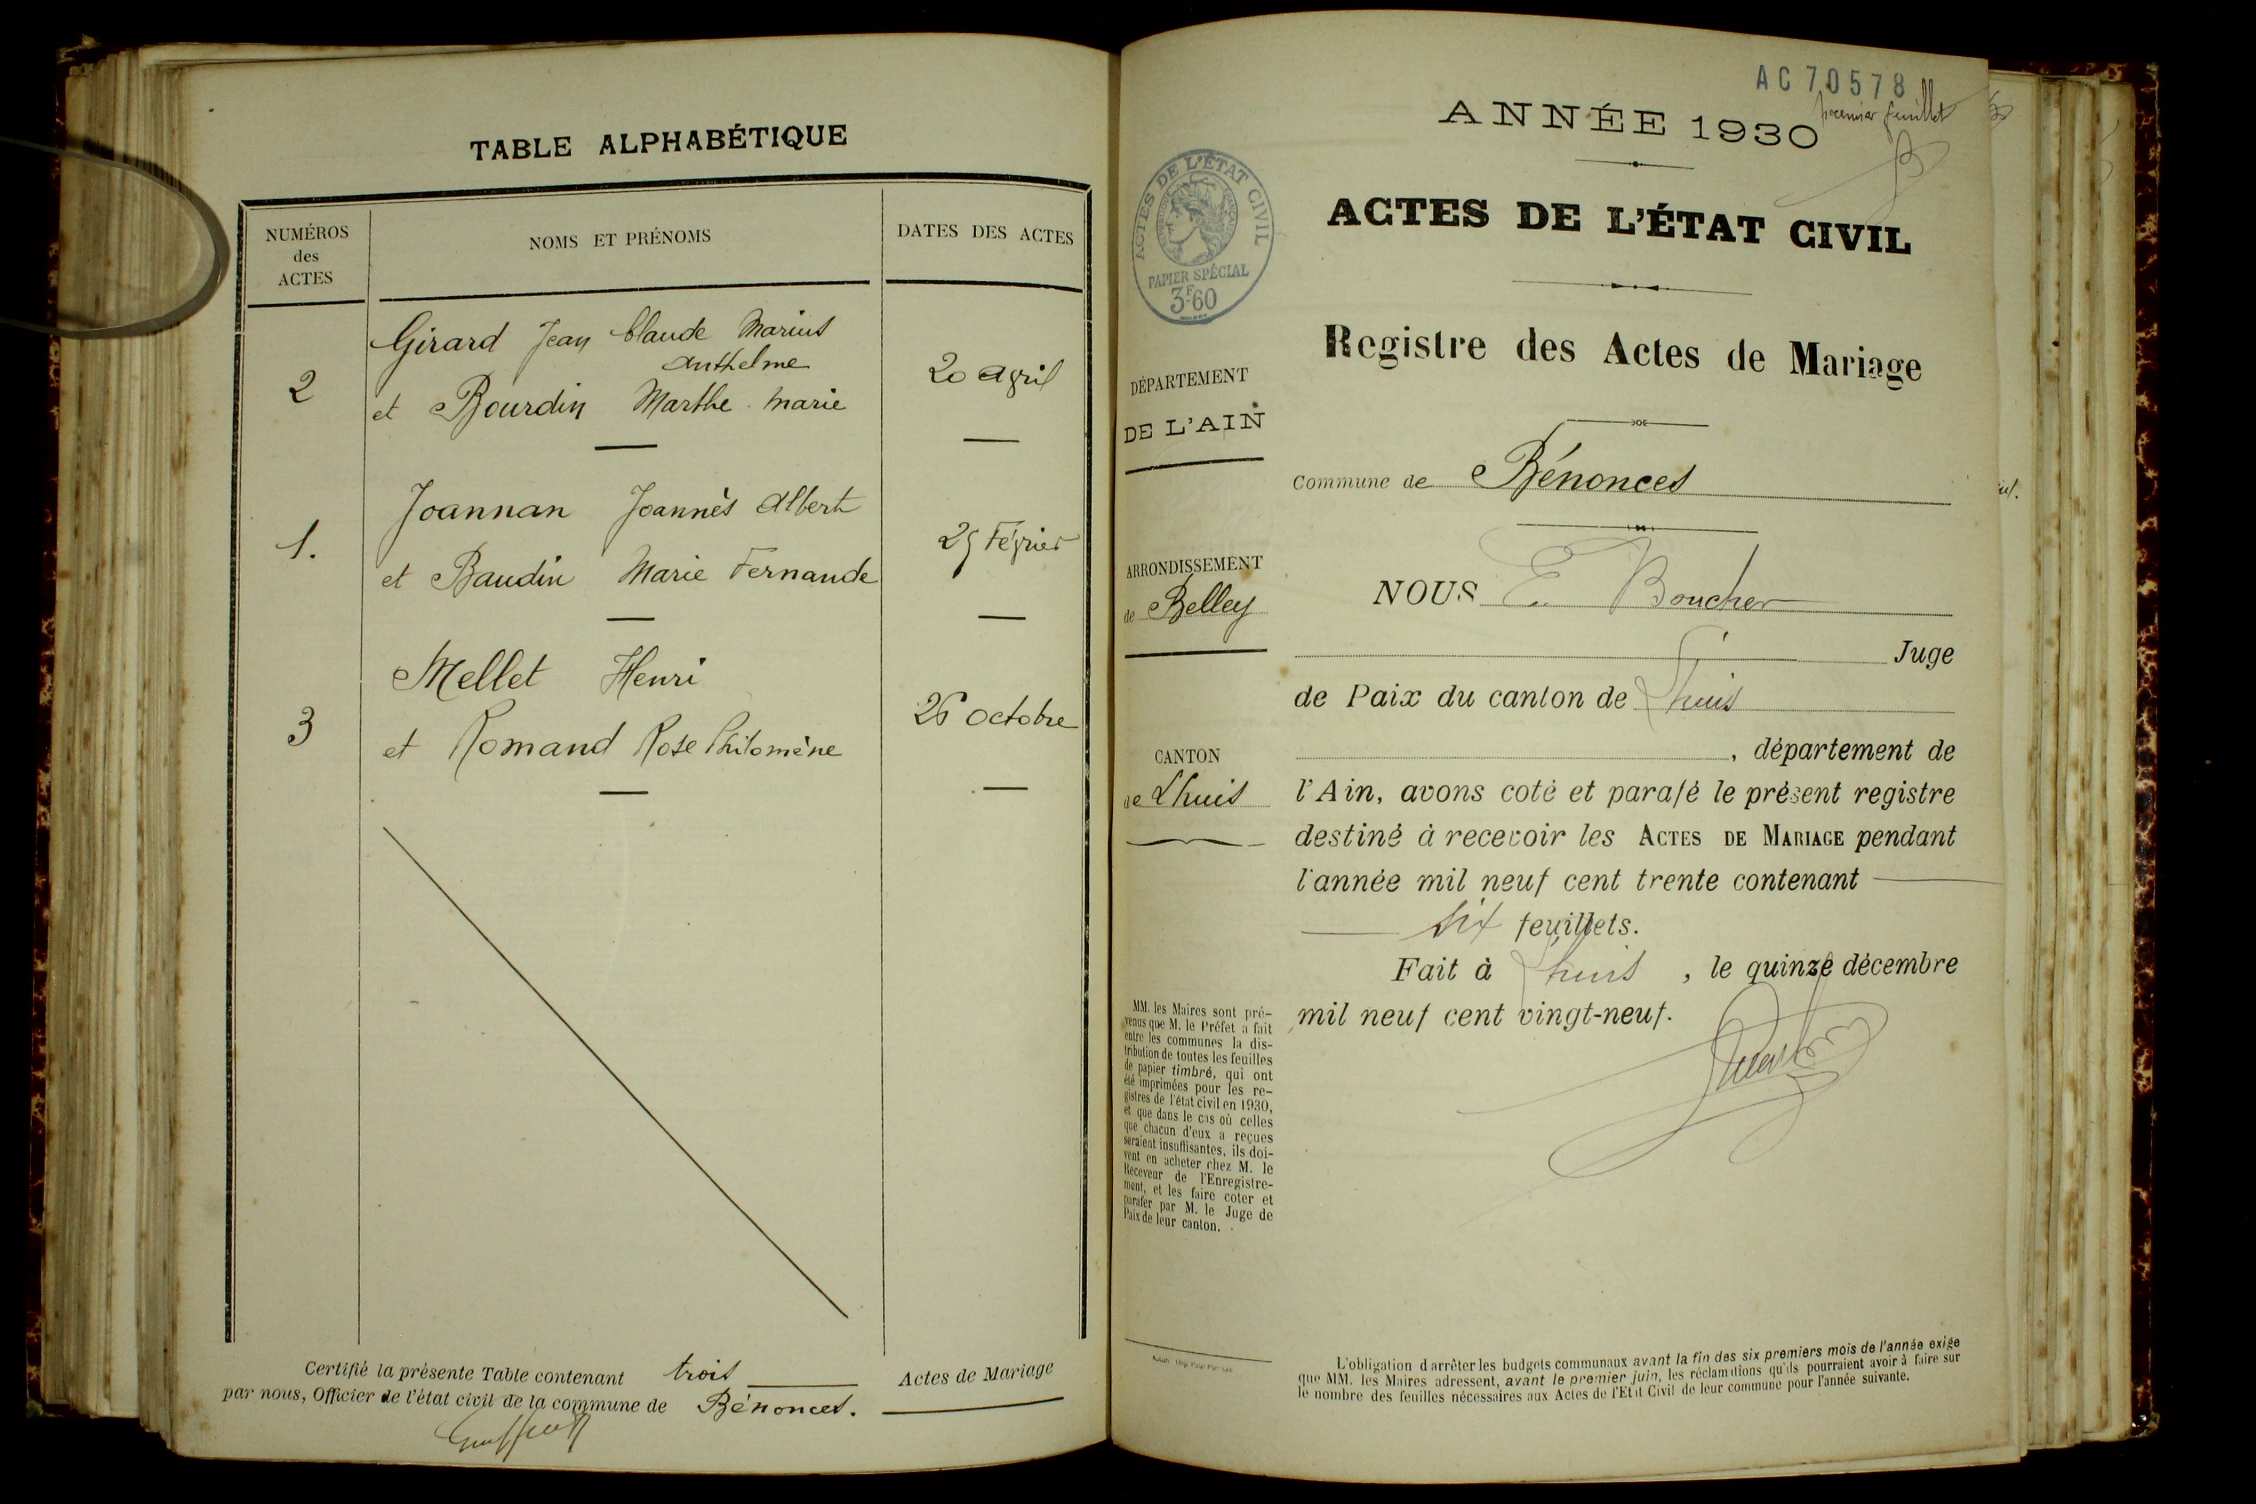 TABLE ALPHABÉTIQUE
NUMÉROS
des
ACTES
NOMS ET PRÉNOMS
DATES DES ACTES
Girard Jean Claude Marius
Anthelme
2
20 avril
et Bourdin Marthe Marie
Joannan Joannès Albert
1.
25 Février
et Baudin Marie Fernande
Mellet Henri
3
26 octobre
et Romand Rose Philomène
Certifié la présente Table contenant trois Actes de Mariage
par nous, Officier de l'état civil de la commune de Bénonces.
AC 70578
premier feuillet
ANNÉE 1930
ACTES DE L'ÉTAT CIVIL
PAPIER SPÉCIAL
3F60
ACTES DE L'ÉTAT CIVIL
Registre des Actes de Mariage
DÉPARTEMENT
DE L'AIN
Commune de Bénonces
ARRONDISSEMENT
de Belley
NOUS E. Boucher
Juge
de Paix du canton de Lhuis
CANTON
de Lhuis
, département de
l'Ain, avons coté et parafé le présent registre
destiné à recevoir les ACTES DE MARIAGE pendant
l'année mil neuf cent trente contenant
six feuillets.
Fait à Lhuis, le quinze décembre
mil neuf cent vingt-neuf.
MM. les Maires sont pré-
venus que M. le Préfet a fait
entre les communes la dis-
tribution de toutes les feuilles
de papier timbré, qui ont
été imprimées pour les re-
gistres de l'état civil en 1930,
et que dans le cas où celles
que chacun d'eux a reçues
seraient insuffisantes, ils doi-
vent en acheter chez M. le
Receveur de l'Enregistre-
ment, et les faire coter et
parafer par M. le Juge de
Paix de leur canton.
L'obligation d'arrêter les budgets communaux avant la fin des six premiers mois de l'année exige
que MM. les Maires adressent, avant le premier juin, les réclamations qu'ils pourraient avoir à faire sur
le nombre des feuilles nécessaires aux Actes de l'Etat Civil de leur commune pour l'année suivante.